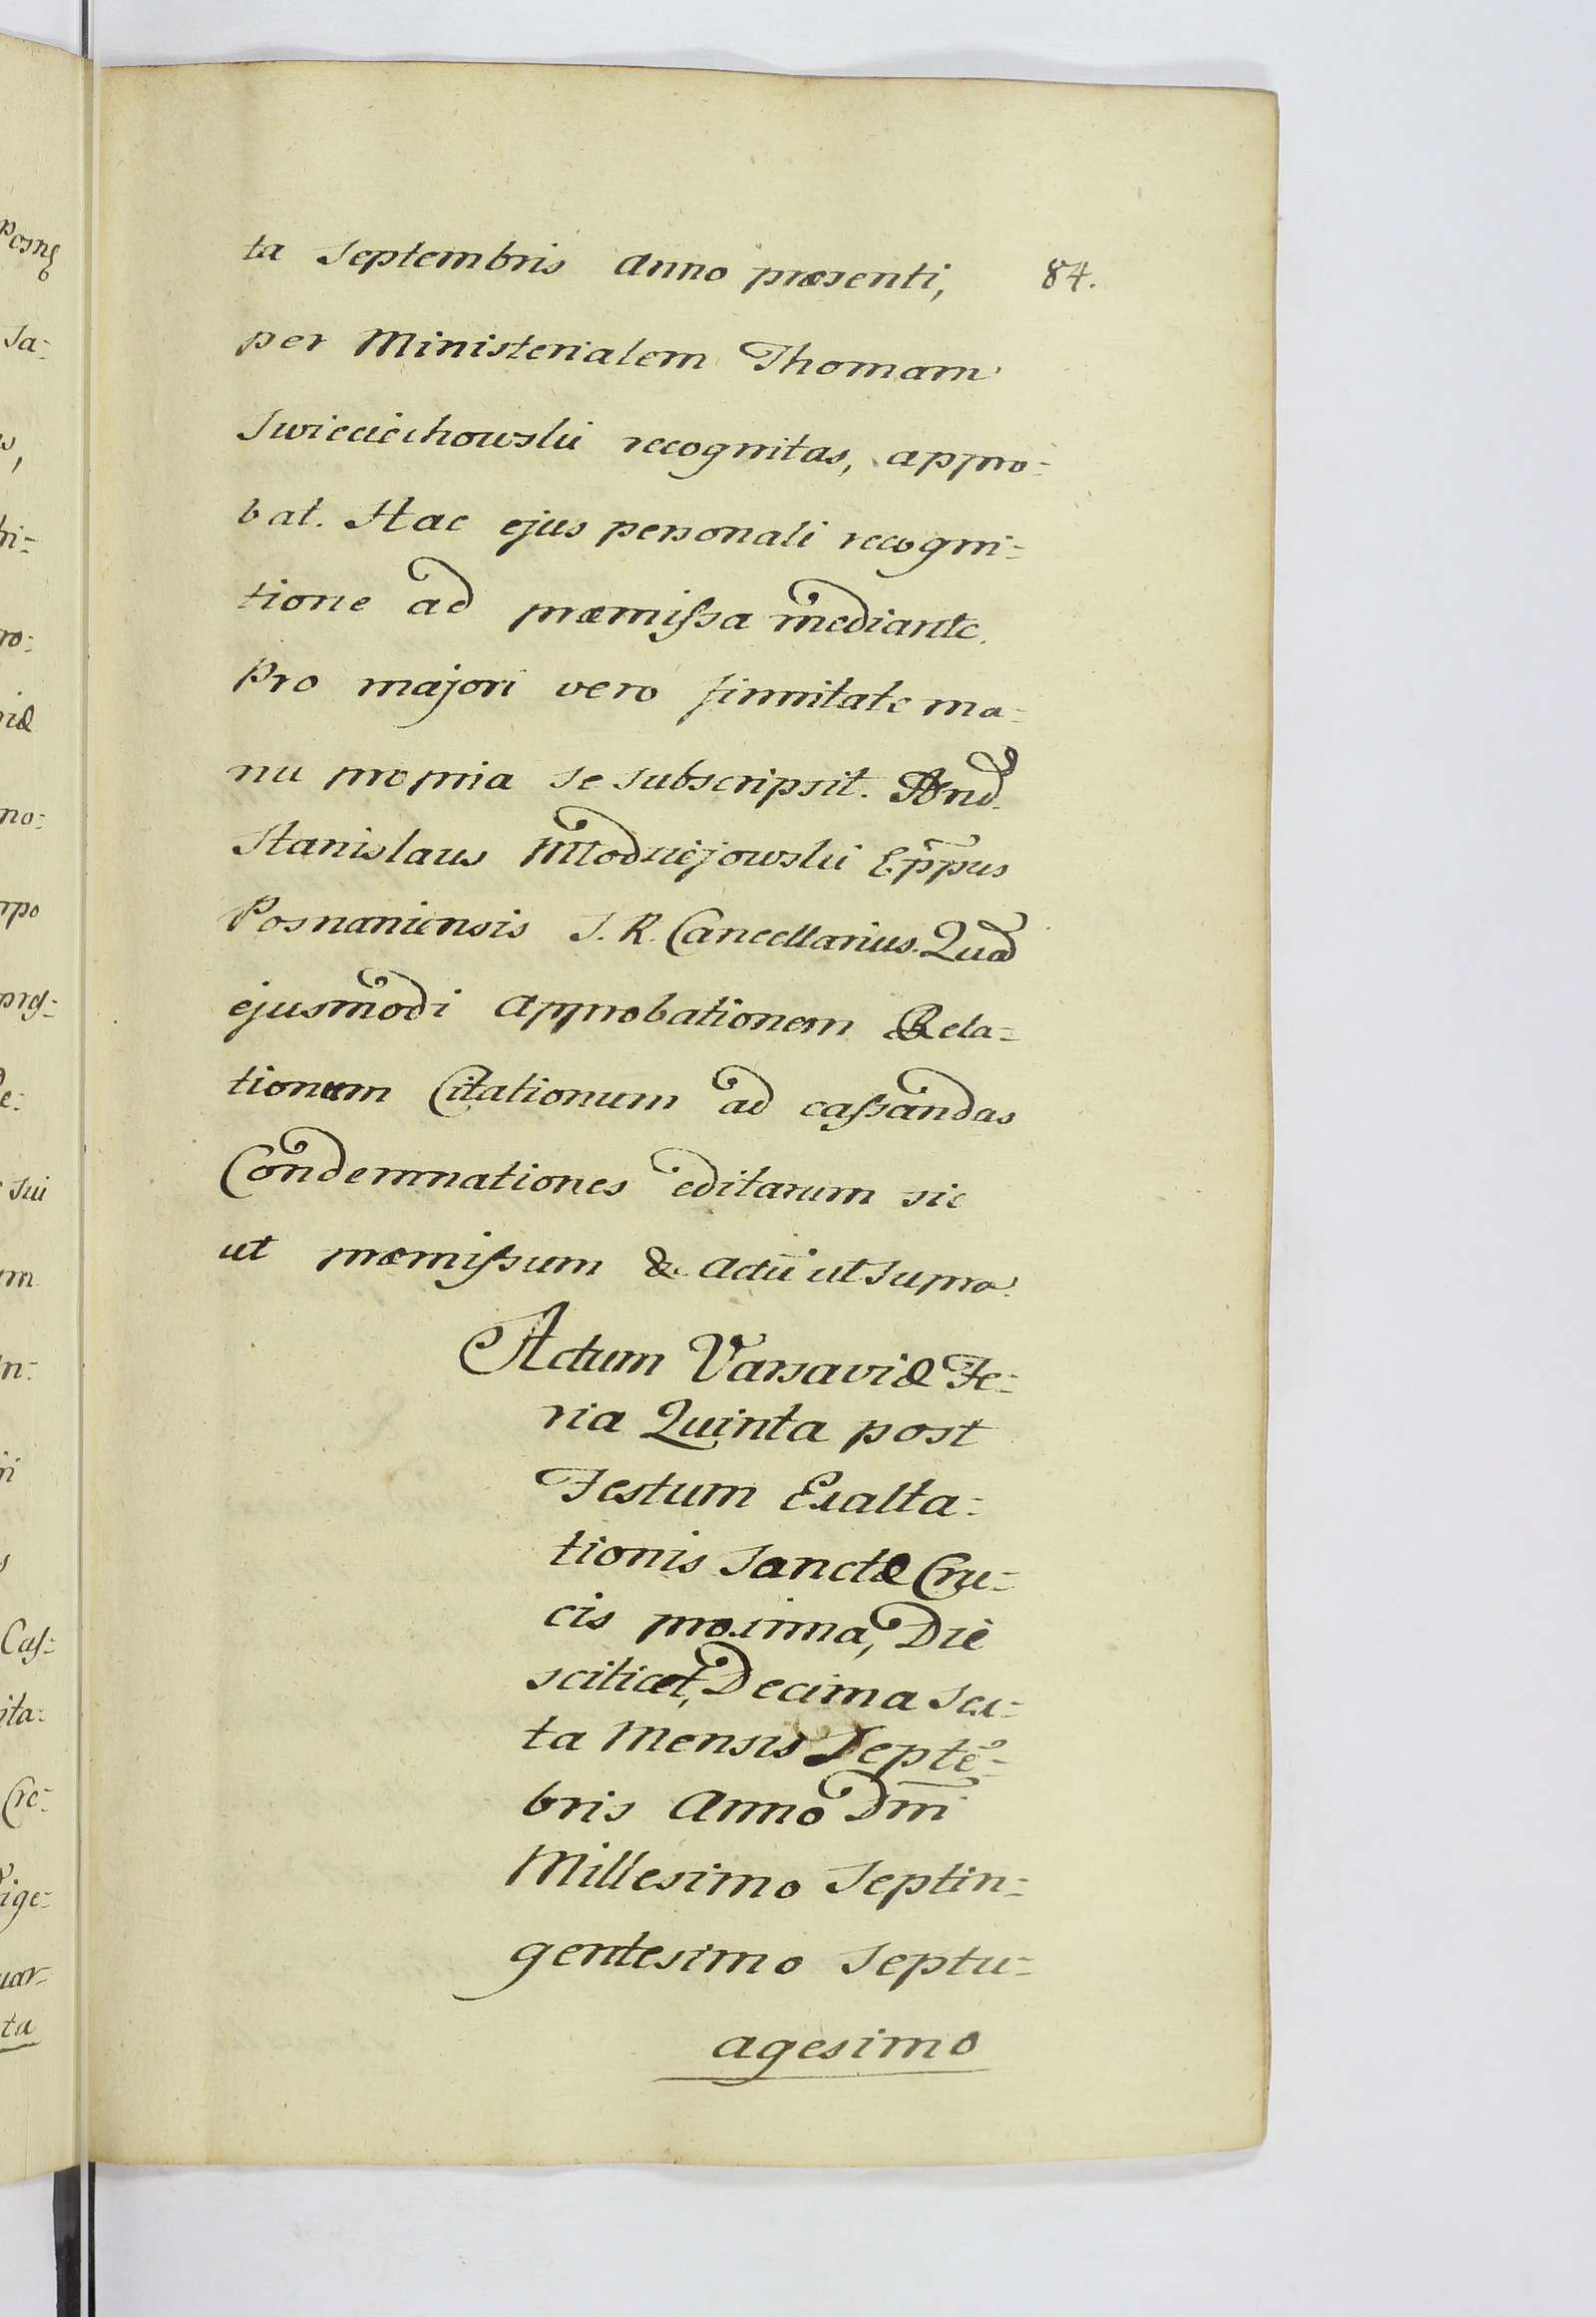 84.
ta Septembris Anno præsenti,
per Ministerialem Thomam
Swieciechowski recognitas, appro=
bat. Hac ejus personali recogni=
tione ad præmissa mediante.
Pro majori vero firmitate ma=
nu propria se subscripsit. And.
Stanislaus Młodziejowski Eppus
Posnaniensis S. R. Cancellarius. Quod
ejusmodi Approbationem Rela=
tionum Citationum ad cassandas
Condemnationes editarum sic
ut præmissum & Actū ut supra.
Actum Varsaviæ Fe=
ria Quinta post
Festum Exalta=
tionis Sanctæ Cru=
cis proxima, Die
scilicet, Decima Sex=
ta Mensis Septē=
bris Anno Dm̄i
Millesimo Septin=
gentesimo Septu=
agesimo